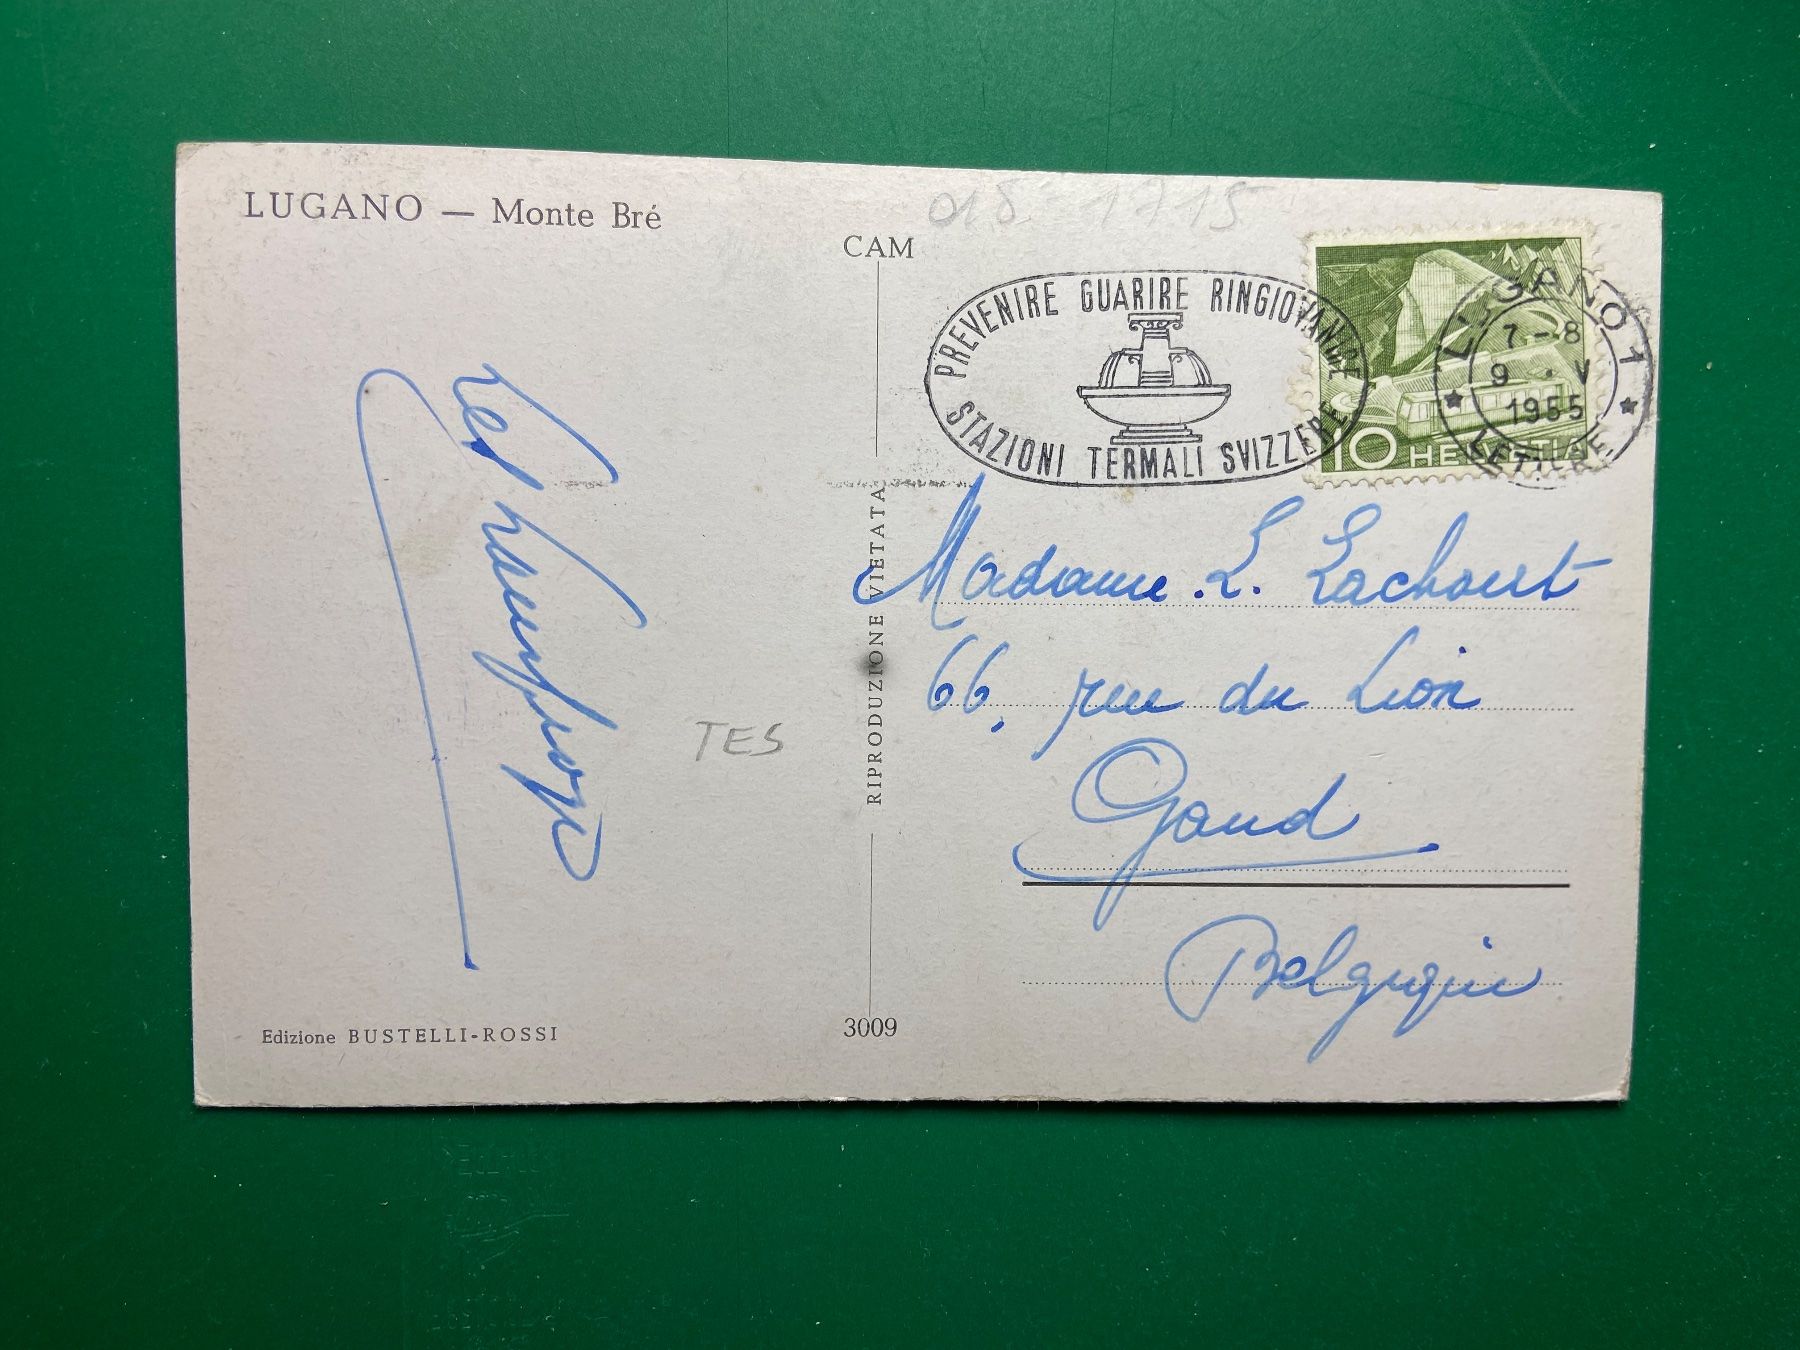 LUGANO — Monte Bré
018 1715
CAM
PREVENIRE GUARIRE RINGIOVANIRE
STAZIONI TERMALI SVIZZERE
LUGANO 1
7-8
9 · V
1955
LETTERE
10 HELVETIA
RIPRODUZIONE VIETATA
Madame L. Lachout
66, rue du Lion
Gand
Belgique
Les
TES
Edizione BUSTELLI-ROSSI
3009